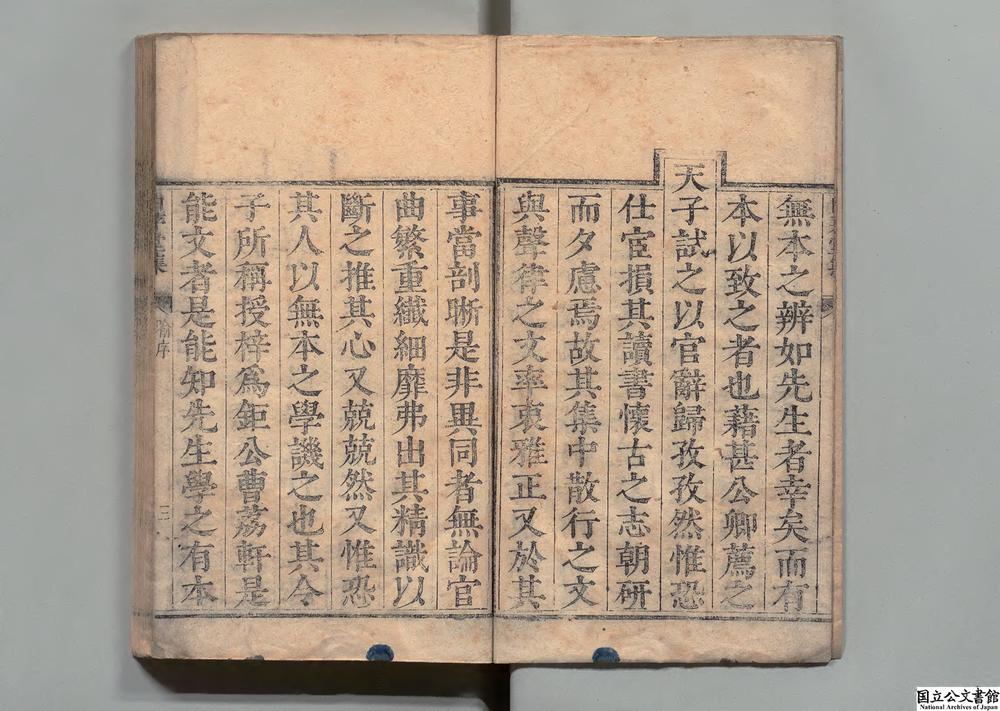 無本之辨如先生者幸矣而有
本以致之者也藉甚公卿薦之
天子試之以官辭歸孜孜然惟恐
仕宦損其讀書懷古之志朝研
而夕慮焉故其集中散行之文
與聲律之文率衷雅正又於其
事當剖晰是非異同者無論官
曲繁重纖細靡弗出其精識以
斷之推其心又兢兢然又惟恐
其人以無本之學譏之也其令
子所稱授梓爲鉅公曹荔軒是
能文者是能知先生學之有本
序
三
国立公文書館
National Archives of Japan